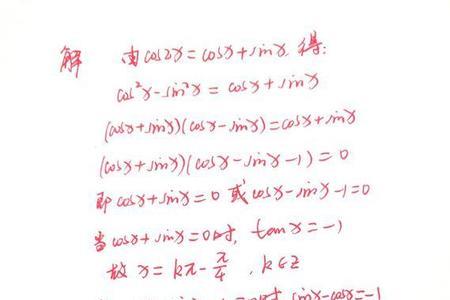 解 由cos2x=cosx+sinx 得:
cos²x-sin²x=cosx+sinx
(cosx+sinx)(cosx-sinx)=cosx+sinx
(cosx+sinx)(cosx-sinx-1)=0
即cosx+sinx=0 或cosx-sinx-1=0
当cosx+sinx=0时, tanx=-1
故 x=kπ-π/4, k∈Z
sinx-cosx=-1